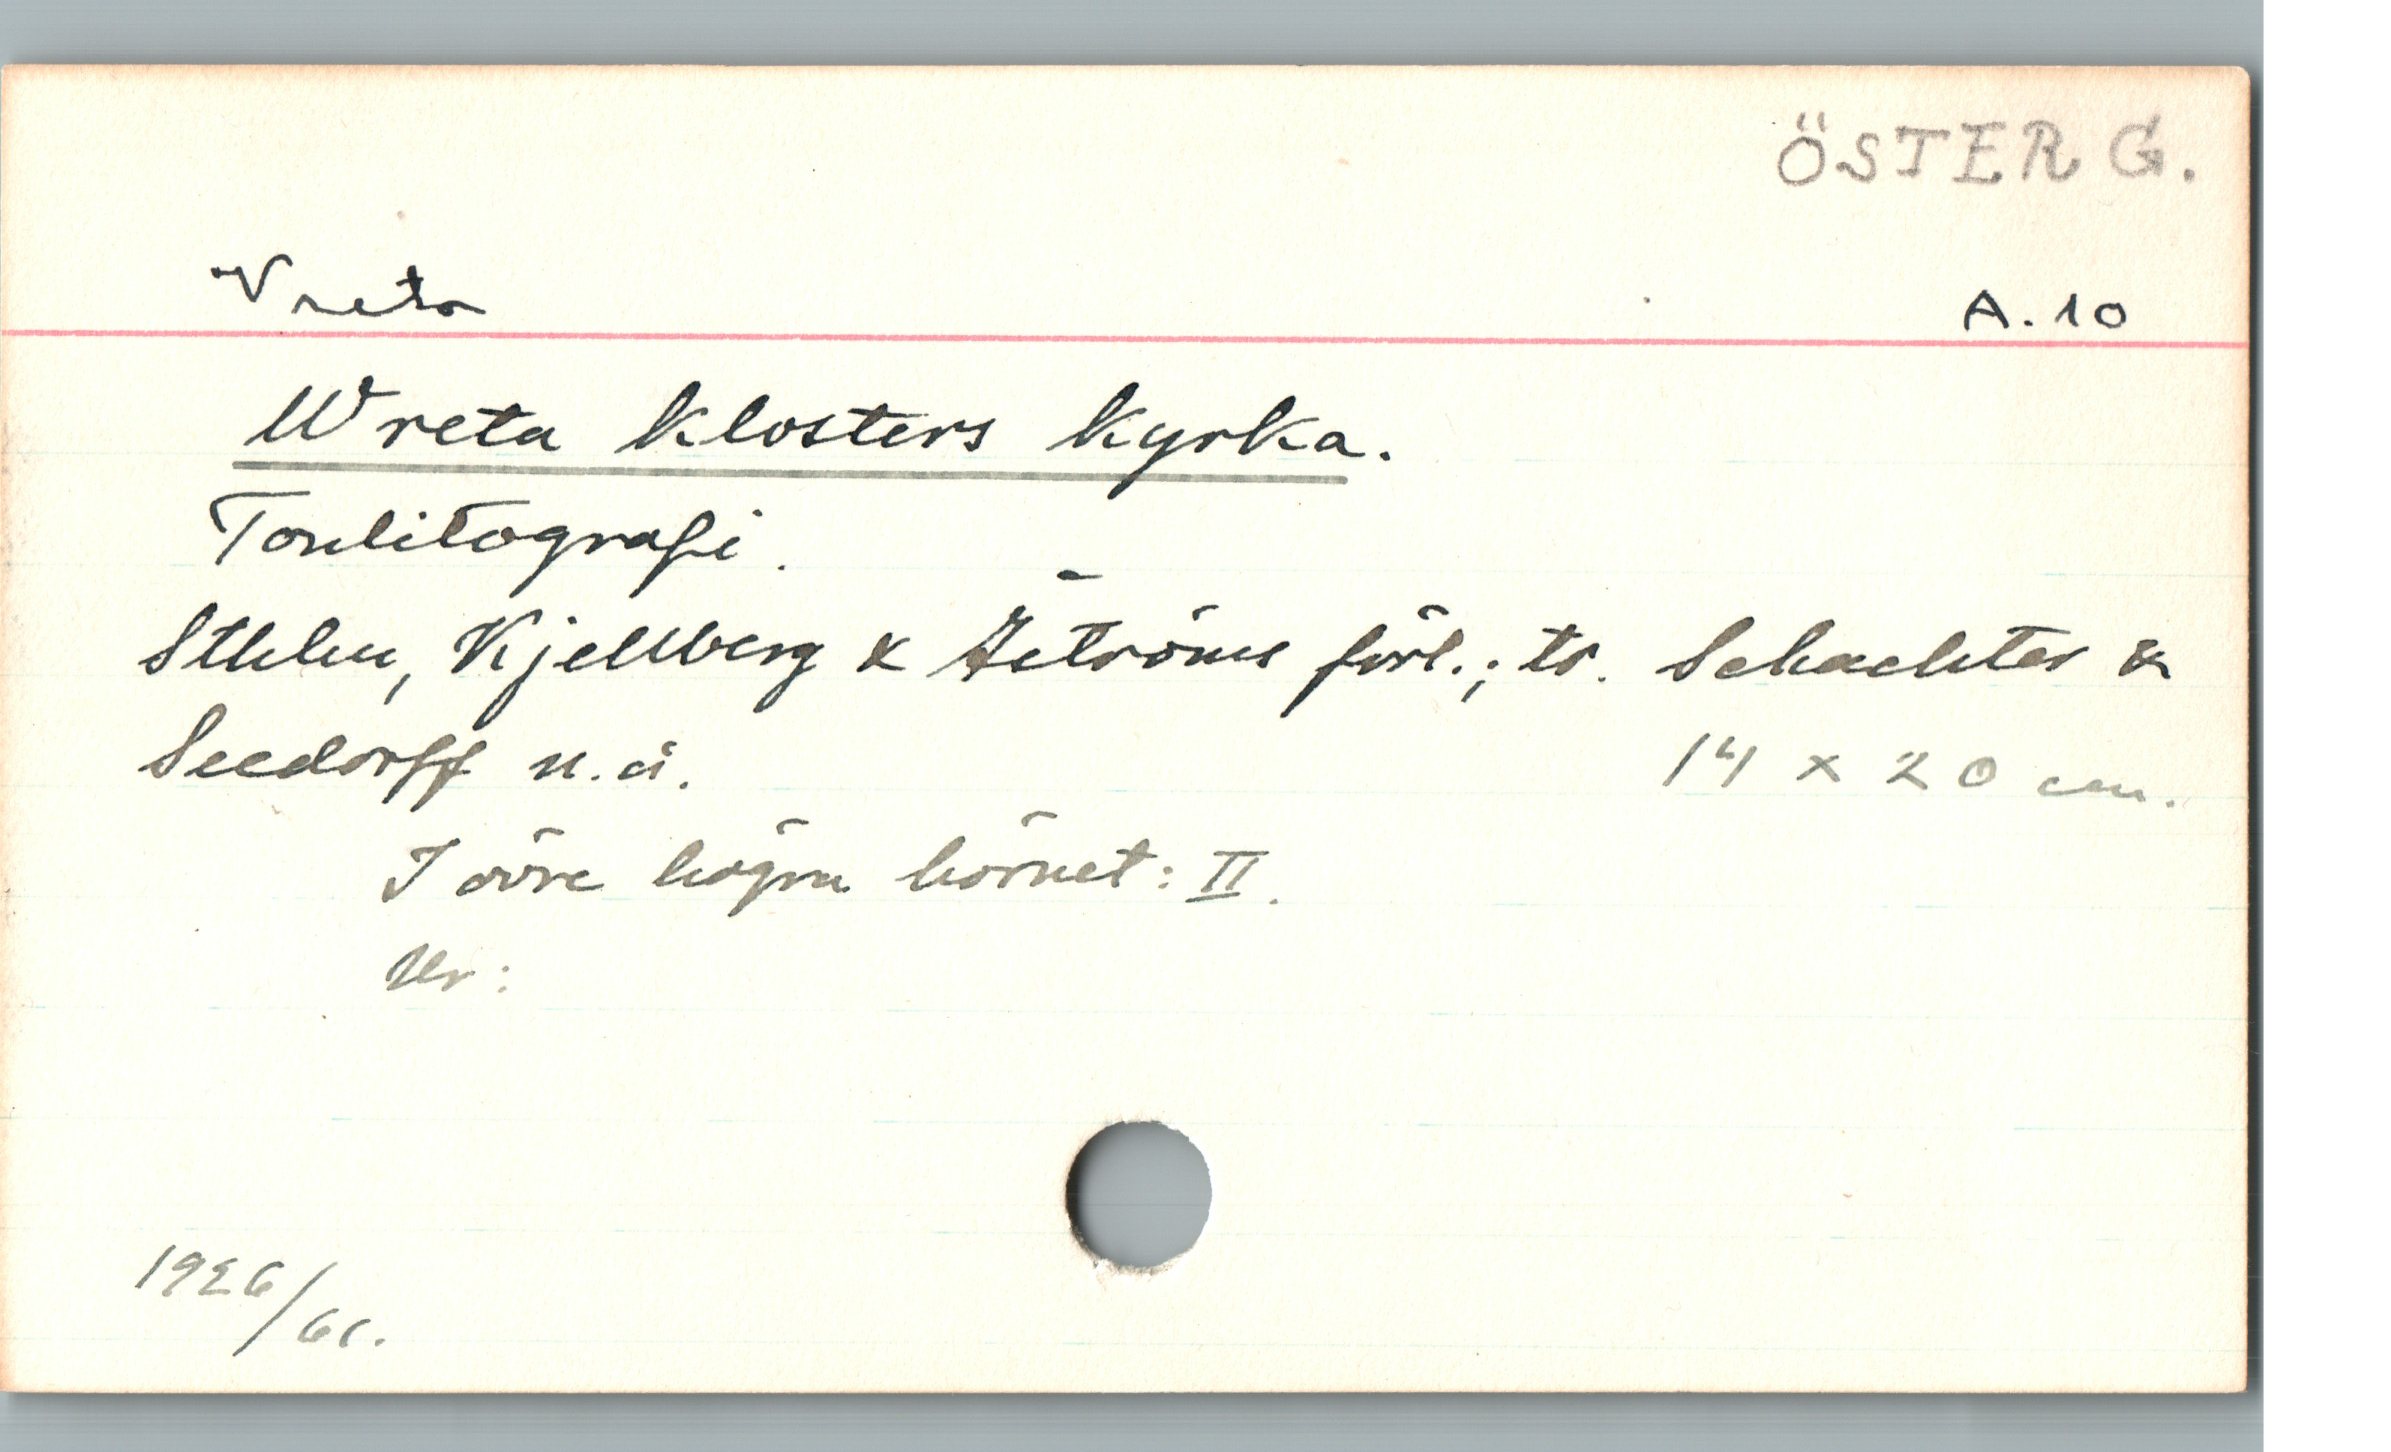 ÖSTERG.
Vreta A.10
Wreta Klosters Kyrka.
Tonlitografi.
Sthlm, Kjellberg & förl.; tr. Schachter &
Seedorff u.å. 14 x 20 cm.
I övre högra hörnet: II.
Ur:
1926/61.